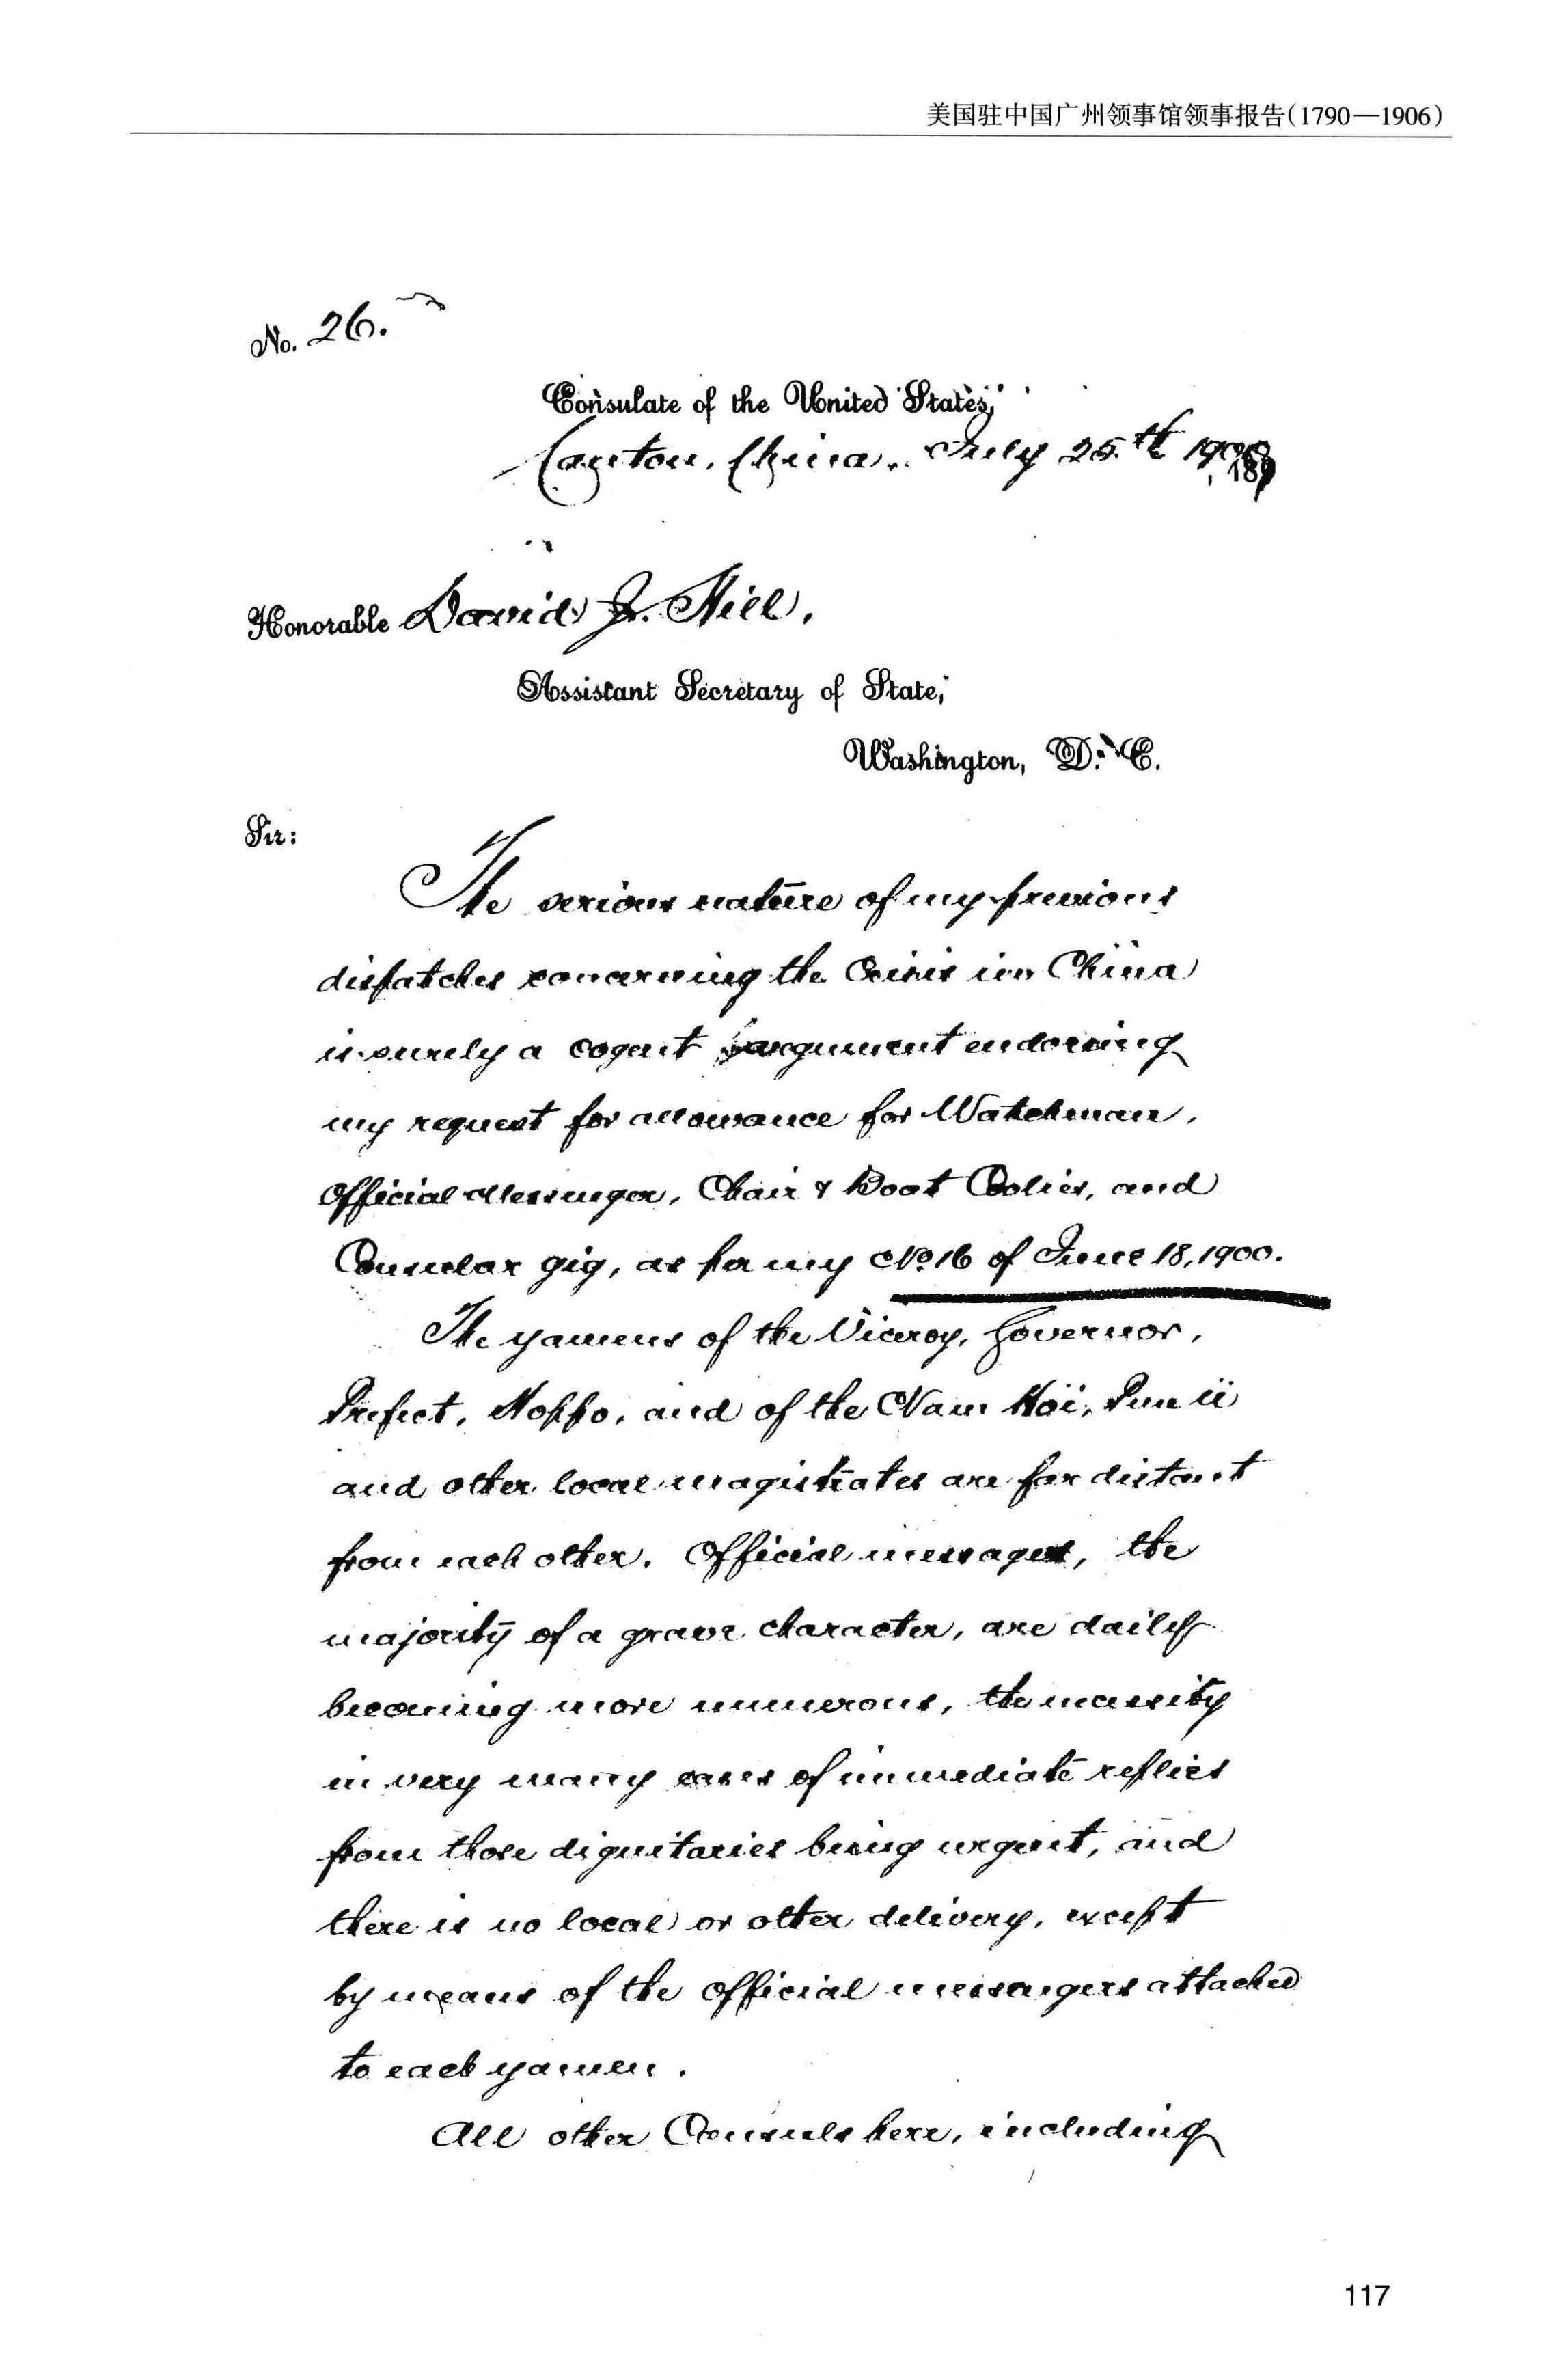 美国驻中国广州领事馆领事报告(1790—1906)
No. 26.
Consulate of the United States,
Canton, China, July 25th 1900
, 189
Honorable David J. Hill,
Assistant Secretary of State,
Washington, D. C.
Sir:
The serious nature of my previous
dispatches concerning the Crisis in China
is surely a cogent argument endorsing
my request for allowance for Watchman,
Official Messenger, Chair & Boat Coolies, and
Consular gig, as per my No. 16 of June 18, 1900.
The yamens of the Viceroy, Governor,
Prefect, Hoppo, and of the Nam Hoi, Pun
and other local magistrates are far distant
from each other. Official messages, the
majority of a grave character, are daily
becoming more numerous, the necessity
in very many cases of immediate replies
from those dignitaries being urgent, and
there is no local or other delivery, except
by means of the official messengers attached
to each yamen.
All other Consuls here, including
117